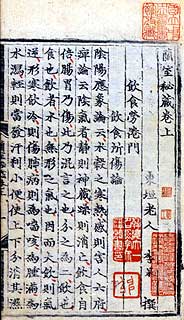 蘭室秘藏卷上
東垣老人 李杲 撰
飲食勞倦門
飲食所傷論
陰陽應象論云水穀之寒熱感則害人六府
痺論云陰氣者靜則神藏躁則消亡飲食自
倍腸胃乃傷此乃混言之也分之為二飲也
食也飲者水也無形之氣也因而大飲則氣
逆形寒飲冷則傷肺病則為喘咳為腫滿為
水瀉輕則當發汗利小便使上下分消其濕